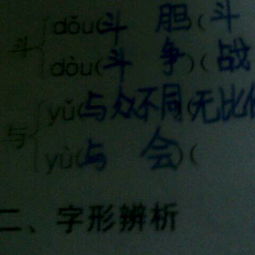 斗 dǒu(斗 胆)(斗
dòu(斗 争)(战
与 yǔ(与众不同)(无比
yù(与 会)(
二、字形辨析